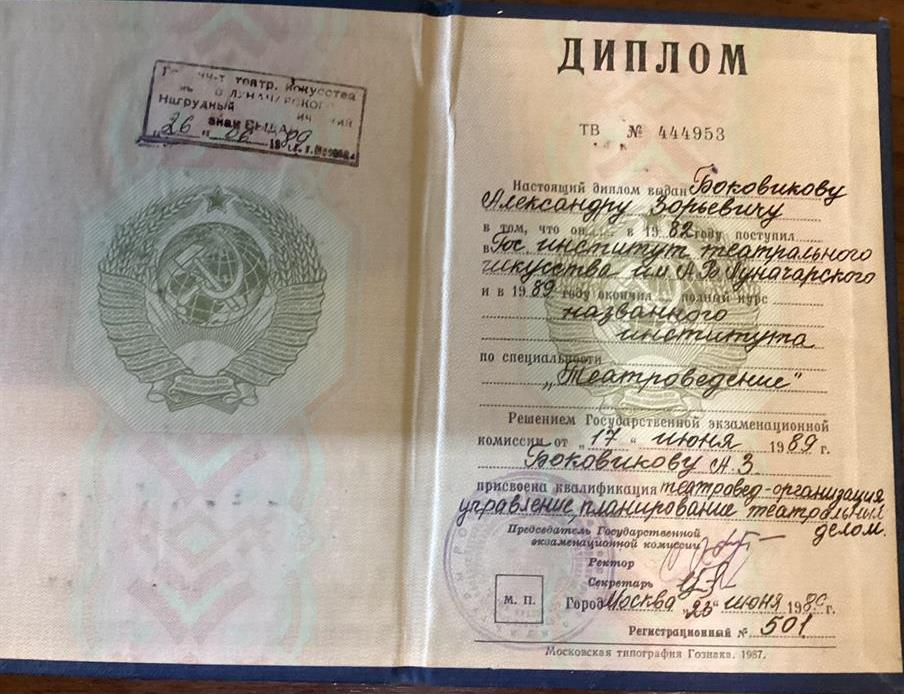 театр. искусства
ЛУНАЧАРСКОГО
Нагрудный
знак ВЫДАН
„26“ 06 1989 г. г. Москва
ДИПЛОМ
ТВ № 444953
Настоящий диплом выдан Боковикову
Александру Зорьевичу
в том, что он в 1982 году поступил
в Гос. институт театрального
искусства им А.В. Луначарского
и в 1989 году окончил полный курс
названного
института
по специальности
„Театроведение"
Решением Государственной экзаменационной
комиссии от „17“ июня 1989 г.
Боковикову А.З
присвоена квалификация театровед-организация
управление, планирование театральным
делом.
Председатель Государственной
экзаменационной комиссии
Ректор
Секретарь
М. П.
Город Москва „23“ июня 1989 г.
Регистрационный № 501
Московская типография Гознака. 1987.